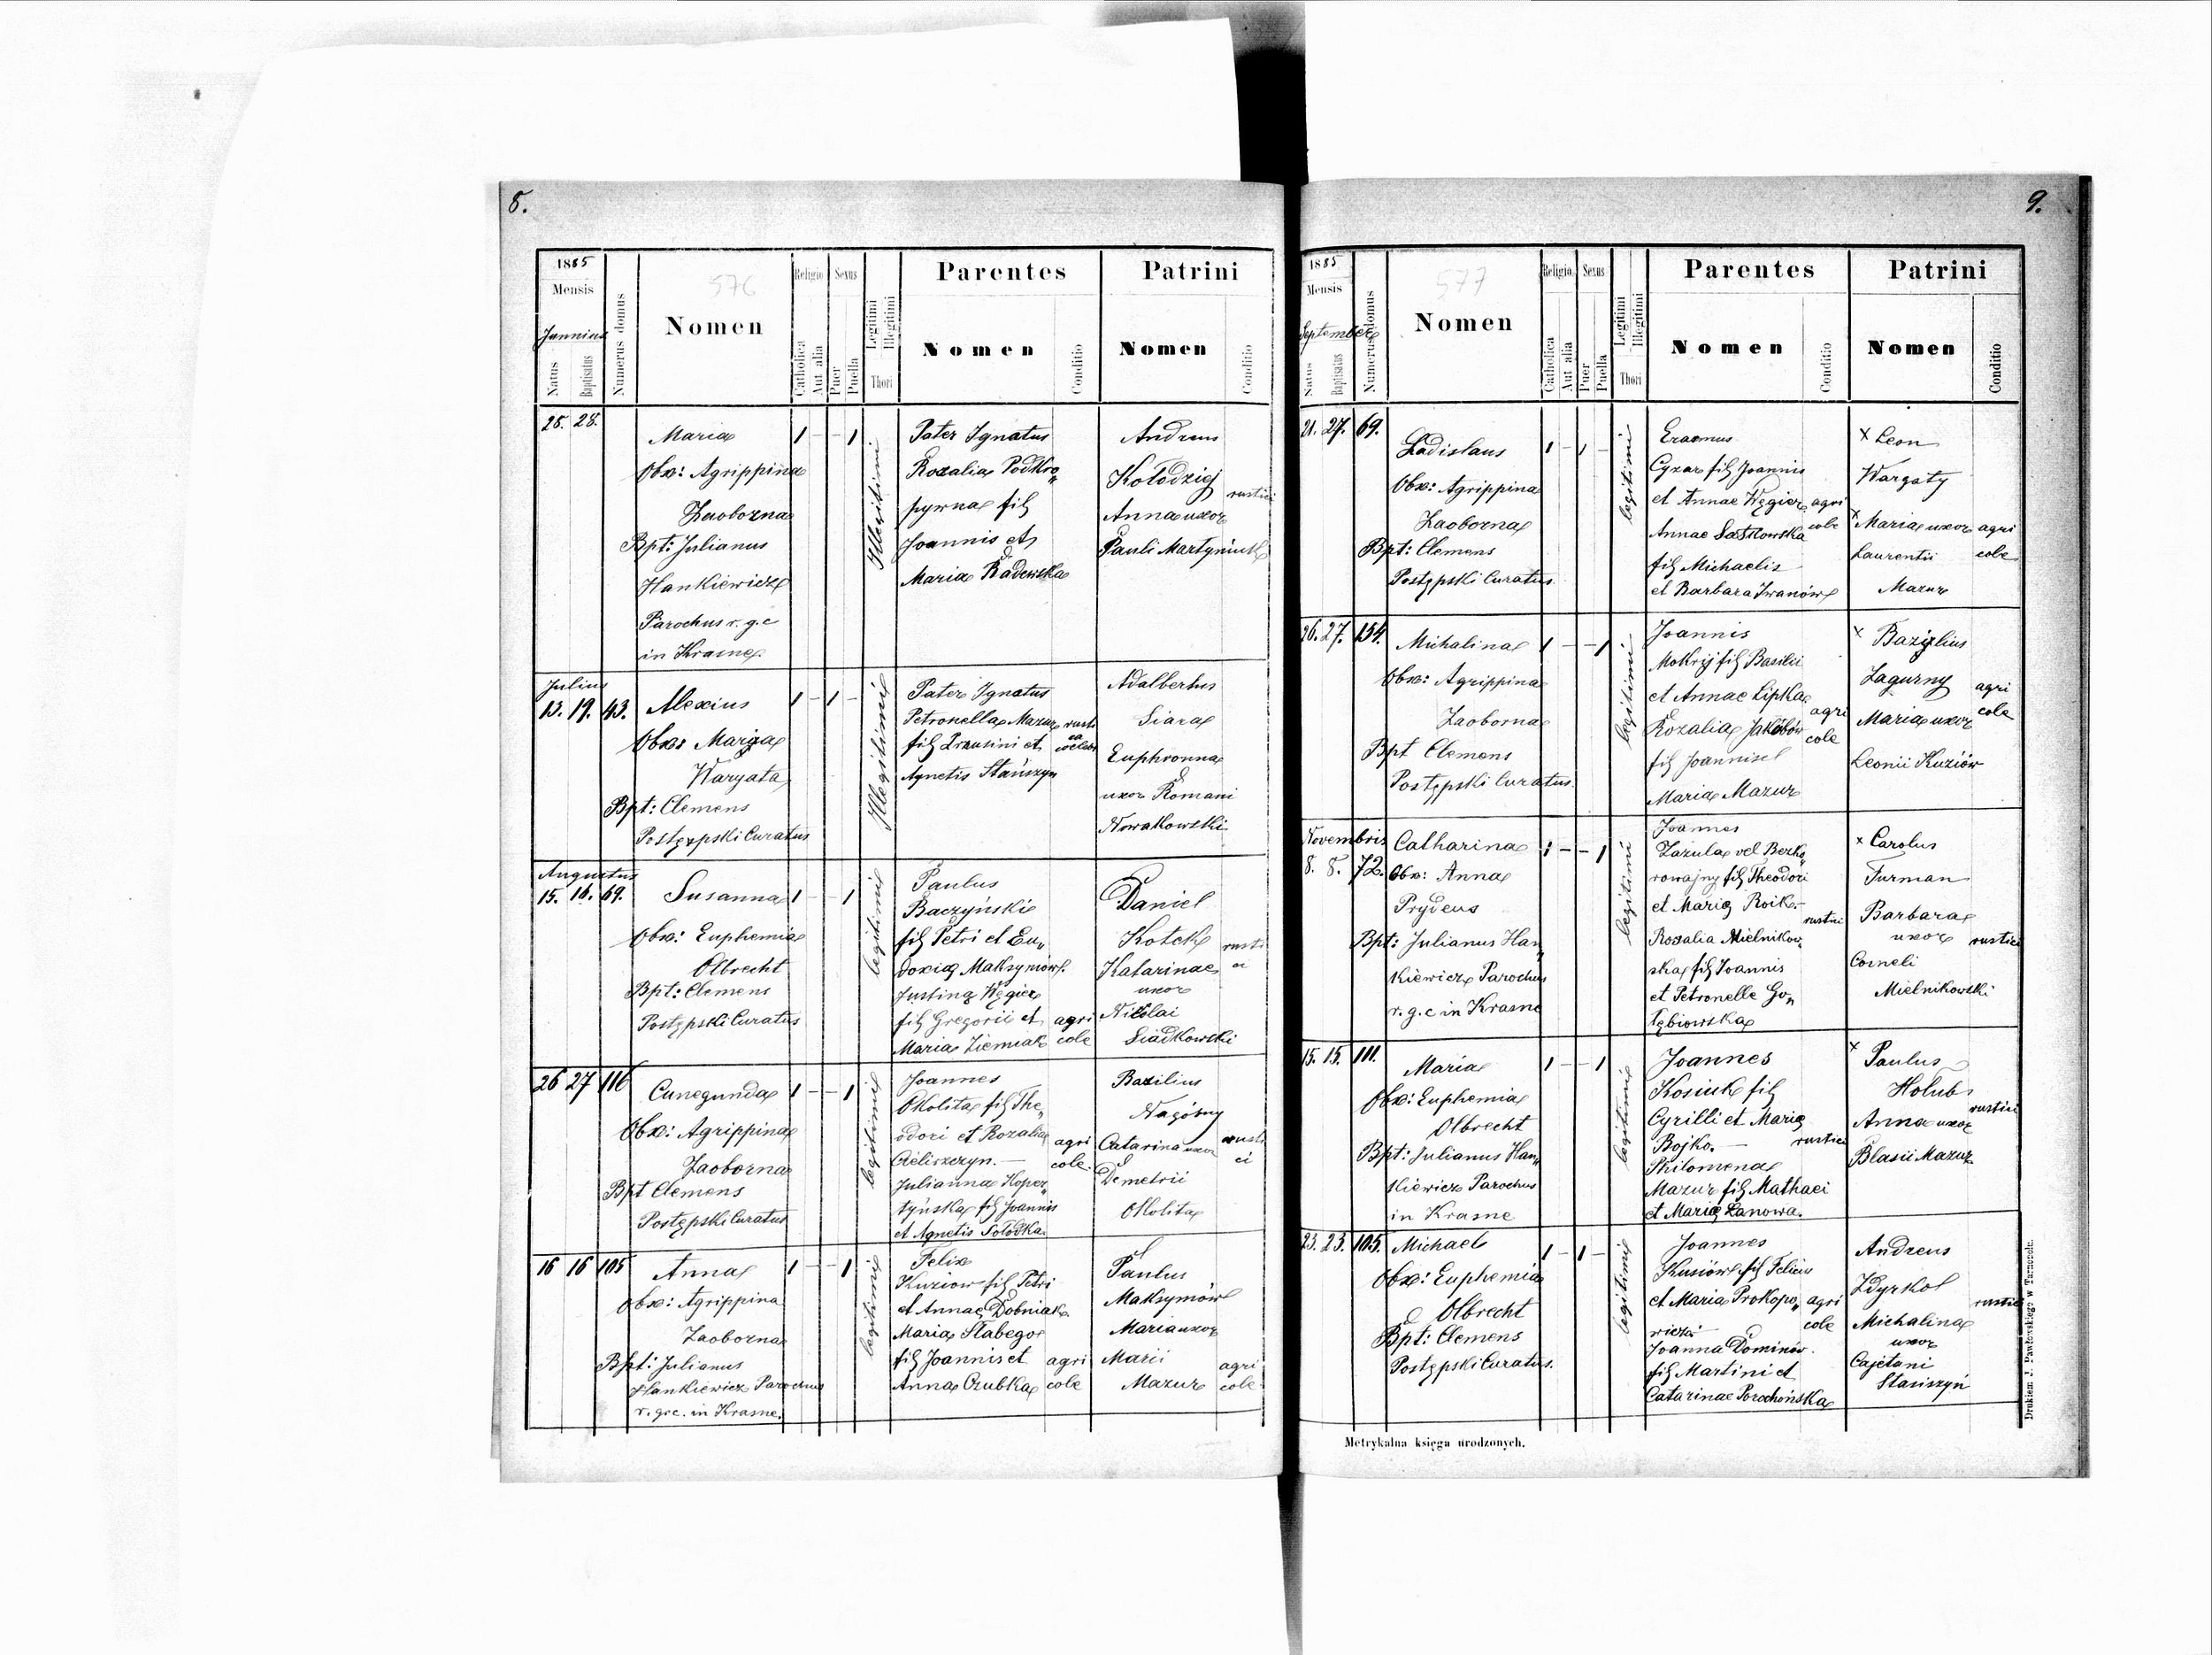 8.
1885
Mensis
Junnius
Natus
Baptisatus
Numerus domus
576
Nomen
Religio
Catholica
Aut alia
Sexus
Puer
Puella
Legitimi
Illegitimi
Thori
Parentes
Nomen
Conditio
Patrini
Nomen
Conditio
28. 28.
Maria
Obx: Agrippina
Zaoborna
Bpt: Julianus
Hankiewicz
Parochus r. g. c
in Krasne
1 - - 1
Illegitimi
Pater Ignatus
Rozalia Podkro„
pywna fil
Joannis et
Maria Radewska
Andreus
Kołodziej
Anna uxor
Pauli Martyniuk
rustici
Julius
13. 19. 43.
Alexius
Obx: Marya
Waryata
Bpt: Clemens
Postępski Curatus
1 - 1 -
Illegitimi
Pater Ignatus
Petronella Mazur
fil et
Agnetis Stańszyn
Adalbertus
Siara
Euphronna
uxor Romani
Nowakowski
Augustus
15. 16. 69.
Susanna
Obx: Euphemia
Olbrecht
Bpt: Clemens
Postępski Curatus
1 - - 1
legitimi
Paulus
Baczyński
fil Petri et Eu„
doxia Maksymów.
Justina Węgier
fil Gregorii et
Maria Ziemiak
agri
cole
Daniel
Kotek
Katarinae
uxor
Nikolai
Siadkowski
rusti
ci
26 27 116
Cunegunda
Obx: Agrippina
Zaoborna
Bpt Clemens
Postępski Curatus
1 - - 1
legitimi
Joannes
Okolita fil The„
odori et Rozalia
Cieliszczyn. —
Julianna Koper„
tyńska fil Joannis
et Agnetis Sołodka.
agri
cole.
Bazilius
Nagórny
Catarina uxor
Demetrii
Okolita
rusti
ci
16 16 105
Anna
Obx: Agrippina
Zaoborna
Bpt: Julianus
Hankiewicz Parochus
r. g. c. in Krasne.
1 - - 1
legitimi
Felix
Kuziow fil Petri
et Annae Dobniak
Maria Słabego
fil Joannis et
Anna Czubka
agri
cole
Paulus
Maksymów
Maria uxor
Marii
Mazur
agri
cole
9.
1885
Mensis
September
Natus
Baptisatus
Numerus domus
577
Nomen
Religio
Catholica
Aut alia
Sexus
Puer
Puella
Legitimi
Illegitimi
Thori
Parentes
Nomen
Conditio
Patrini
Nomen
Conditio
21. 27. 69.
Ladislaus
Obx: Agrippina
Zaoborna
Bpt: Clemens
Postępski Curatus
1 - 1 -
legitimi
Erasmus
Cyzar fil Joannis
et Annae Węgier
Annae Saskowska
fil Michaelis
et Barbara Iwanów
agri
cole
x Leon
Wargaty
x Maria uxor
Laurentii
Mazur
agri
cole
26. 27. 154.
Michalina
Obx: Agrippina
Zaoborna
Bpt Clemens
Postępski Curatus.
1 - - 1
legitimi
Joannis
Mokrij fil Basilii
et Annae Lipka
Rozalia Jakóbów
fil Joannis et
Maria Mazur
agri
cole
x Bazylius
Zagurny
Maria uxor
Leonii Kuziów
agri
cole
Novembris
8. 8. 72.
Catharina
Obx: Anna
Prydeus
Bpt: Julianus Han„
kiewicz Parochus
r. g. c in Krasne
1 - - 1
legitimi
Joannes
Zazula vel Bezko„
rowajny fil Theodori
et Maria Roik.
Rozalia Mielnikow„
ska fil Joannis
et Petronelle Go„
łębiowska
rustici
x Carolus
Furman
Barbara
uxor
Corneli
Mielnikowski
rustici
15. 15. 111.
Maria
Obx: Euphemia
Olbrecht
Bpt: Julianus Han„
kiewicz Parochus
in Krasne
1 - - 1
legitimi
Joannes
Kosiuk fil
Cyrilli et Maria
Bojko. —
Philomena
Mazur fil Mathaei
et Maria Łanowa.
rustici
x Paulus
Holub
Anna uxor
Blasii Mazur
rustici
23. 23. 105.
Michael
Obx: Euphemia
Olbrecht
Bpt: Clemens
Postępski Curatus.
1 - 1 -
legitimi
Joannes
Kusiów fil Felicis
et Maria Prokopo„
wicza
Joanna Dominów.
fil Martini et
Catarinae Porochońska
agri
cole
Andreus
Zdyrkol
Michalina
uxor
Cajetani
Stasiszyń
rustici
Metrykalna księga urodzonych.
Drukiem J. Pawłowskiego w Tarnopolu.